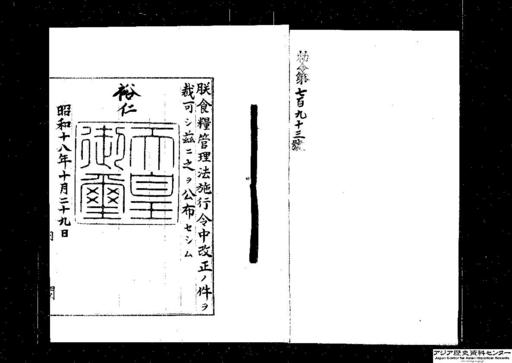 勅令第七百九十三號
朕食糧管理法施行令中改正ノ件ヲ
裁可シ茲ニ之ヲ公布セシム
裕仁
天皇
御璽
昭和十八年十月二十九日
アジア歴史資料センター
Japan Center for Asian Historical Records